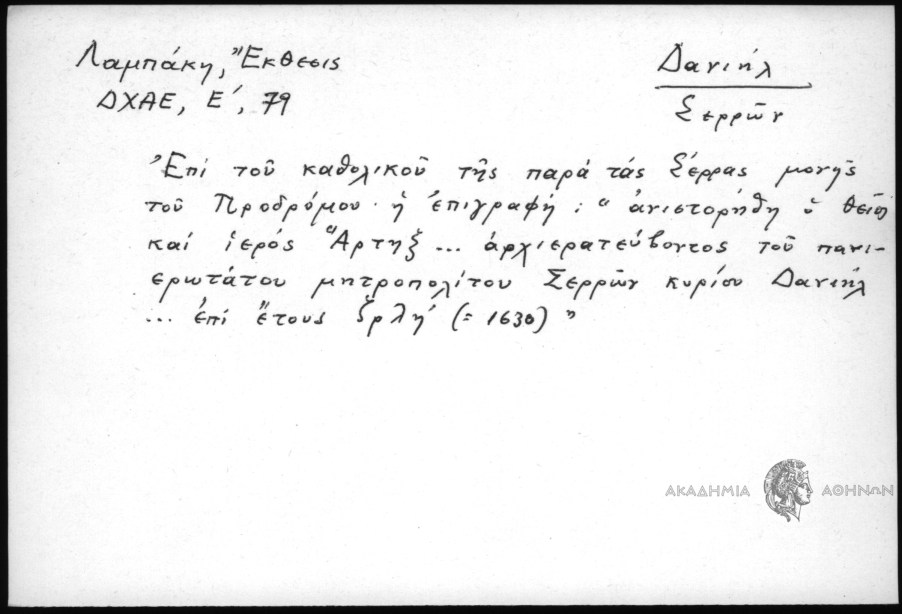 Λαμπάκη, Ἔκθεσις
ΔΧΑΕ, Ε΄, 79
Δανιήλ
Σερρῶν
Ἐπί τοῦ καθολικοῦ τῆς παρά τάς Σέρρας μονῆς
τοῦ Προδρόμου ἡ ἐπιγραφή : "ἀνιστορήθη ὁ θεῖος
καί ἱερός Ἄρτηξ ... ἀρχιερατεύβοντος τοῦ πανι-
ερωτάτου μητροπολίτου Σερρῶν κυρίου Δανιήλ
... ἐπί ἔτους ζρλη΄ (= 1630)"
ΑΚΑΔΗΜΙΑ ΑΘΗΝΩΝ